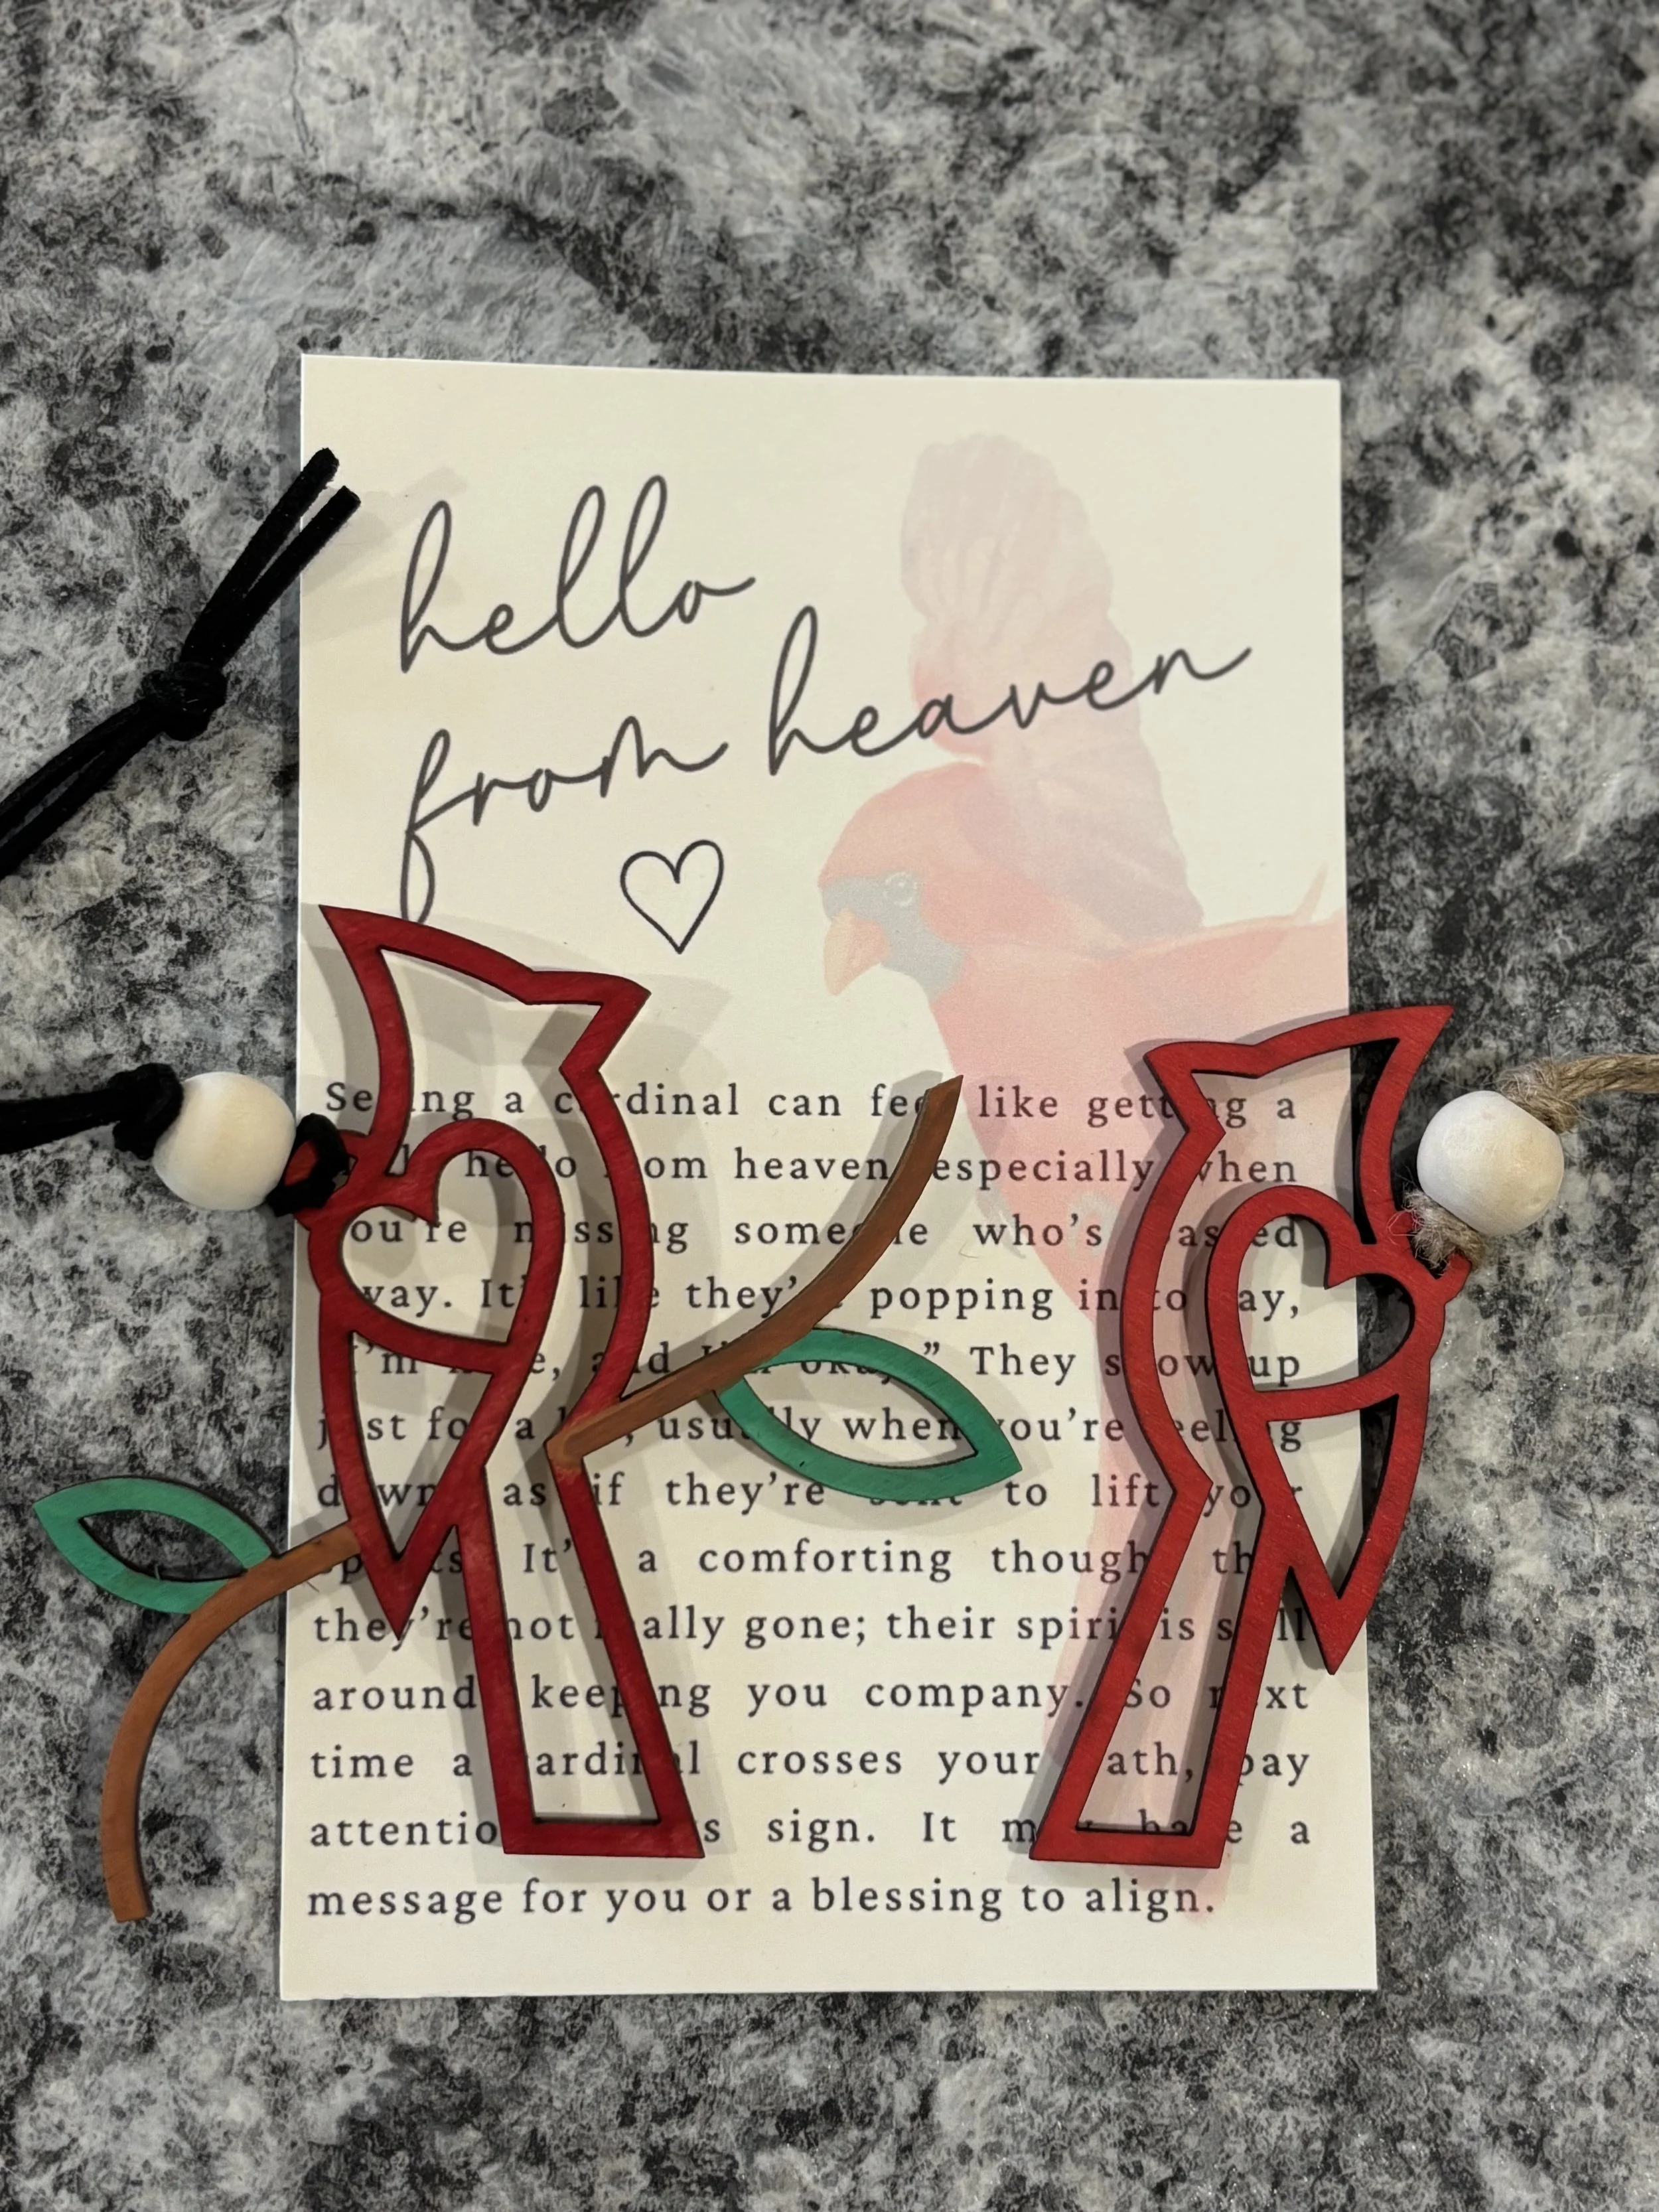 hello
from heaven
Seeing a cardinal can feel like getting a
hello from heaven, especially when
you're missing someone who's passed
away. It's like they're popping in to say,
"I'm here, and I'm okay." They show up
just for a usually when you're feeling
down, as if they're sent to lift your
spirits. It's a comforting thought that
they're not really gone; their spirit is still
around keeping you company. So next
time a cardinal crosses your path, pay
attention sign. It may have a
message for you or a blessing to align.